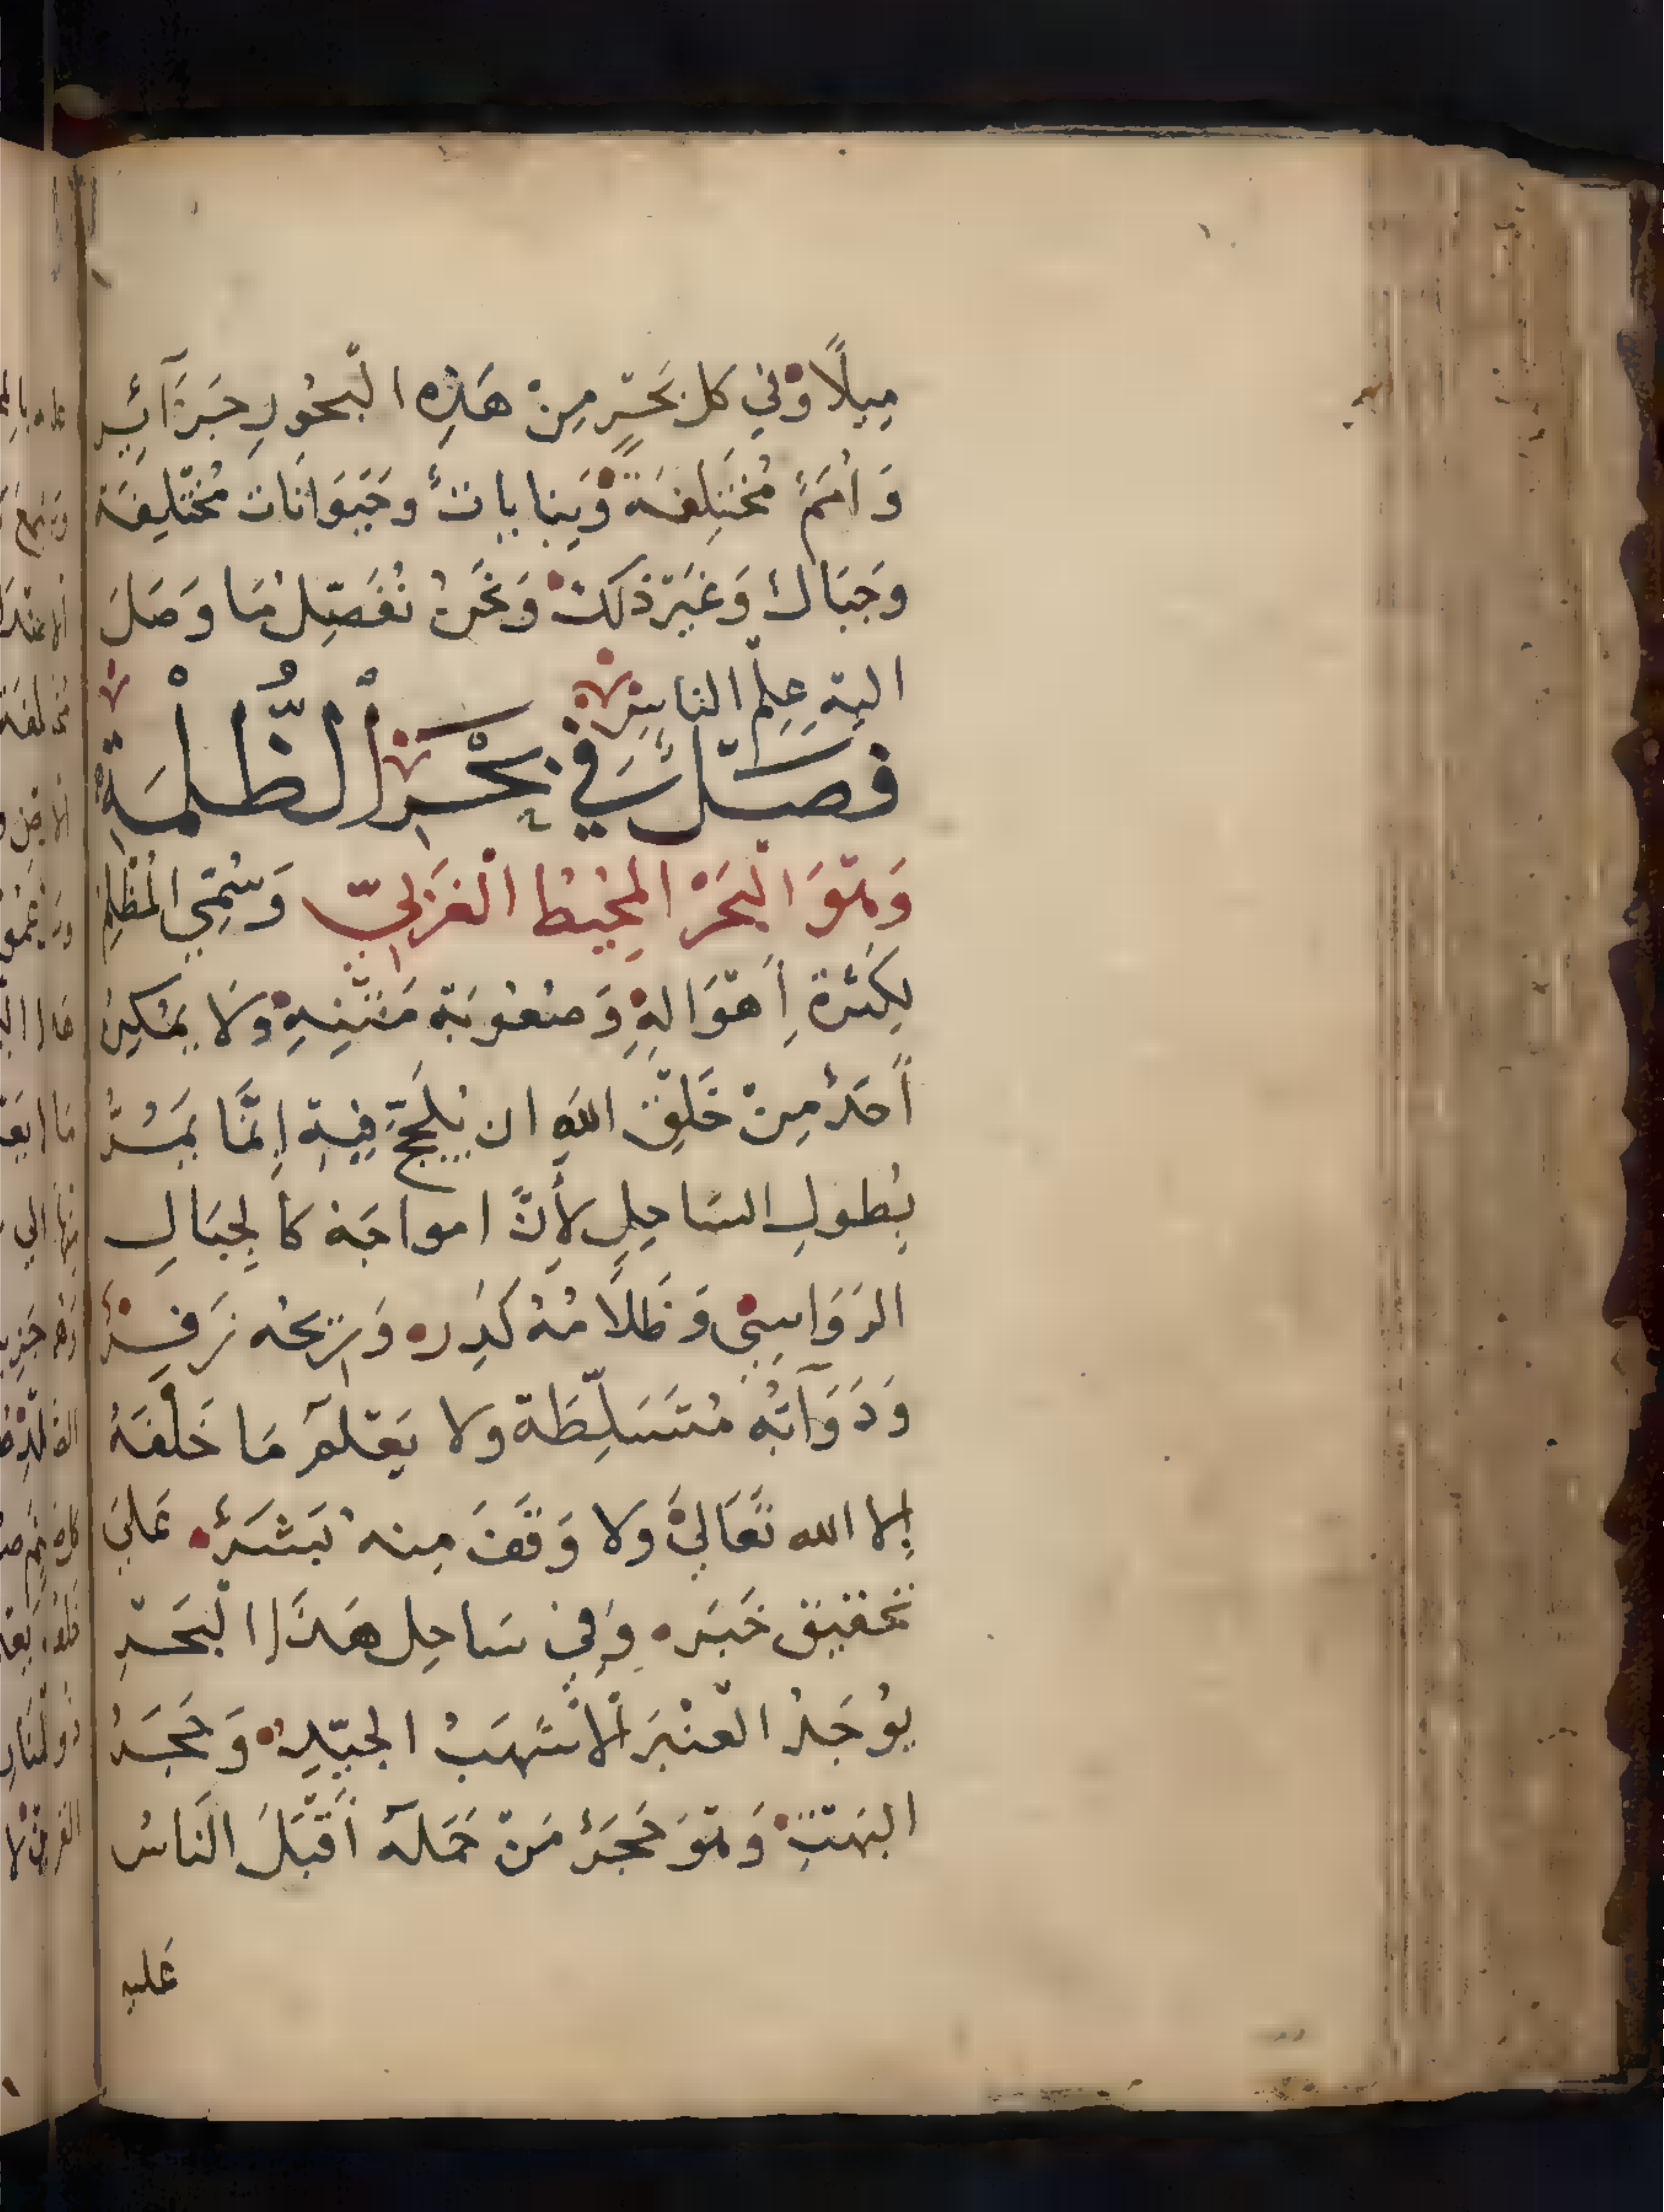 مِيلًا وَفِي كل بَحْرٍ مِنْ هَذِهِ الْبَحُورِ جَزَآئِر
وَأُمَمٌ مُخْتَلِفَة وَنباباتٌ وحَيَوَانَات مُخْتَلِفَة
وَجِبَالٌ وَغَيْر ذلك وَنَحْنُ نُفَصِّلُ مَا وَصَلَ
اليْهِ عِلْمِ الناسِ
فَصْلٌ فِي بَحْرِ الْظُّلْمَةِ
وَهْوَ الْبَحْرْ المحِيْط الْغَرْبِيّ وَسُمِّيَ المُظْلِمْ
لِكَثْرة أَهْوَالِهِ وَصُعُوبَة مَتْنِهِ وَلَا يمْكِنُ
أَحَدٌ مِنْ خَلْقِ اللهِ ان يُلَجِّجْ فِيهِ إِنَّمَا يَمُرُّ
بِطولِ السَاحِلِ لأَنَّ امواجَه كالجِبَالِ
الرَوَاسِيْ وَظَلَامُهُ كَدِره وَرِيحُه زَفِرٌ
وَدَوَآبُهُ مُتَسَلِّطَة ولا يَعْلَم مَا خَلْفَهُ
إلا الله تَعَالَى وَلا وَقَفَ مِنهُ بَشَرٌ عَلي
تحقيق خَبَره وَفِي سَاحِل هَذَا الْبَحْرِ
يُوْجَدُ الْعَنْبَر الْأَشْهَبُ الجَيِّدِ وَحَجَرُ
البَهْتِ وَهْوَ حَجَرٌ مَنْ حَمَلَهُ أَقْبَلَ النَاسُ
عَليه